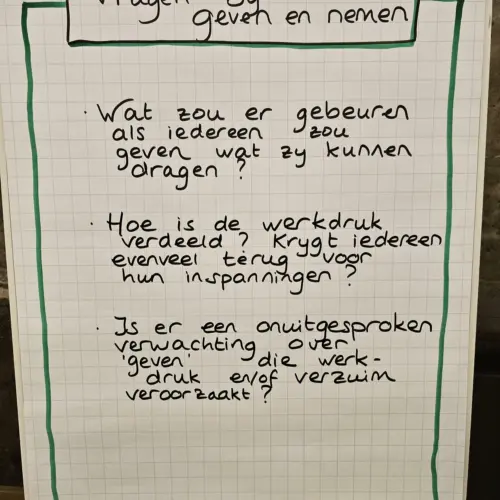 Vragen by
geven en nemen
· Wat zou er gebeuren
als iedereen zou
geven wat zy kunnen
dragen ?
· Hoe is de werkdruk
verdeeld ? Krygt iedereen
evenveel terug voor
hun inspanningen ?
· Is er een onuitgesproken
verwachting over
'geven' die werk-
druk en/of verzuim
veroorzaakt ?